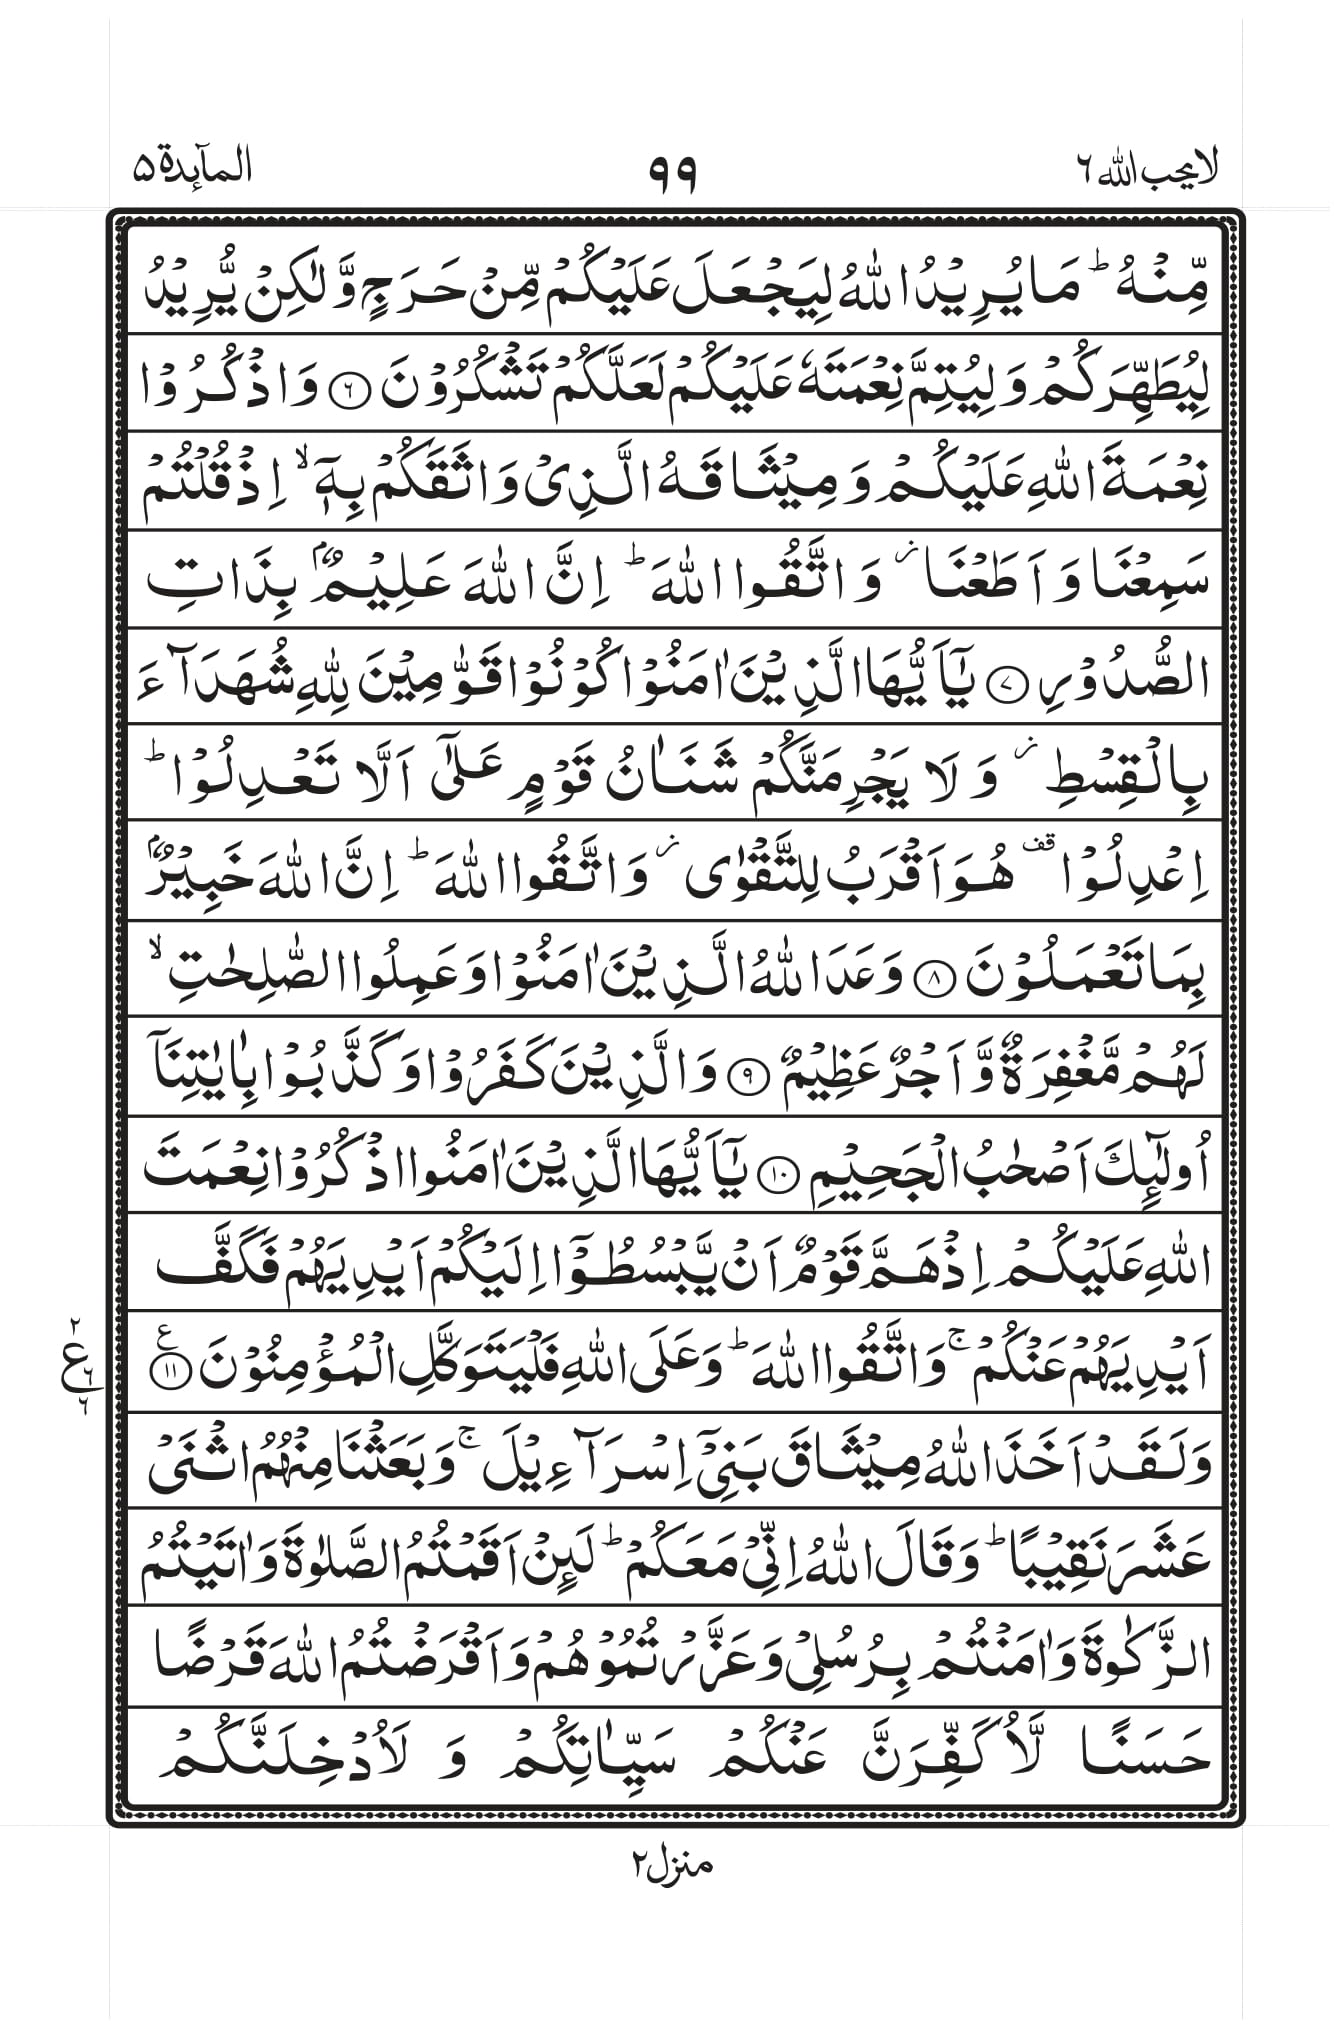 لا یحب اللہ ۶
۹۹
المآىِٕدة ۵
مِّنْهُ ؕ مَا یُرِیْدُ اللّٰهُ لِیَجْعَلَ عَلَیْكُمْ مِّنْ حَرَجٍ وَّ لٰكِنْ یُّرِیْدُ
لِیُطَهِّرَكُمْ وَ لِیُتِمَّ نِعْمَتَهٗ عَلَیْكُمْ لَعَلَّكُمْ تَشْكُرُوْنَ ﴿۶﴾ وَ اذْكُرُوْا
نِعْمَةَ اللّٰهِ عَلَیْكُمْ وَ مِیْثَاقَهُ الَّذِیْ وَاثَقَكُمْ بِهٖۤ ۙ اِذْ قُلْتُمْ
سَمِعْنَا وَ اَطَعْنَا ؗ وَ اتَّقُوا اللّٰهَ ؕ اِنَّ اللّٰهَ عَلِیْمٌۢ بِذَاتِ
الصُّدُوْرِ ﴿۷﴾ یٰۤاَیُّهَا الَّذِیْنَ اٰمَنُوْا كُوْنُوْا قَوّٰمِیْنَ لِلّٰهِ شُهَدَآءَ
بِالْقِسْطِ ؗ وَ لَا یَجْرِمَنَّكُمْ شَنَاٰنُ قَوْمٍ عَلٰۤى اَلَّا تَعْدِلُوْا ؕ
اِعْدِلُوْا قف هُوَ اَقْرَبُ لِلتَّقْوٰى ؗ وَ اتَّقُوا اللّٰهَ ؕ اِنَّ اللّٰهَ خَبِیْرٌۢ
بِمَا تَعْمَلُوْنَ ﴿۸﴾ وَعَدَ اللّٰهُ الَّذِیْنَ اٰمَنُوْا وَ عَمِلُوا الصّٰلِحٰتِ ۙ
لَهُمْ مَّغْفِرَةٌ وَّ اَجْرٌ عَظِیْمٌ ﴿۹﴾ وَ الَّذِیْنَ كَفَرُوْا وَ كَذَّبُوْا بِاٰیٰتِنَاۤ
اُولٰٓىِٕكَ اَصْحٰبُ الْجَحِیْمِ ﴿۱۰﴾ یٰۤاَیُّهَا الَّذِیْنَ اٰمَنُوا اذْكُرُوْا نِعْمَتَ
اللّٰهِ عَلَیْكُمْ اِذْ هَمَّ قَوْمٌ اَنْ یَّبْسُطُوْۤا اِلَیْكُمْ اَیْدِیَهُمْ فَكَفَّ
اَیْدِیَهُمْ عَنْكُمْ ۚ وَ اتَّقُوا اللّٰهَ ؕ وَ عَلَى اللّٰهِ فَلْیَتَوَكَّلِ الْمُؤْمِنُوْنَ ﴿۱۱﴾ ع
۲
ع ۶
۶
وَ لَقَدْ اَخَذَ اللّٰهُ مِیْثَاقَ بَنِیْۤ اِسْرَآءِیْلَ ۚ وَ بَعَثْنَا مِنْهُمُ اثْنَیْ
عَشَرَ نَقِیْبًا ؕ وَ قَالَ اللّٰهُ اِنِّیْ مَعَكُمْ ؕ لَىِٕنْ اَقَمْتُمُ الصَّلٰوةَ وَ اٰتَیْتُمُ
الزَّكٰوةَ وَ اٰمَنْتُمْ بِرُسُلِیْ وَ عَزَّرْتُمُوْهُمْ وَ اَقْرَضْتُمُ اللّٰهَ قَرْضًا
حَسَنًا لَّاُكَفِّرَنَّ عَنْكُمْ سَیِّاٰتِكُمْ وَ لَاُدْخِلَنَّكُمْ
منزل ۲